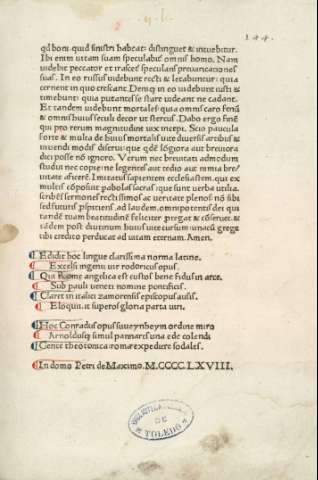 144.
qd boni. quid sinistri habeat: distinguet & intuebitur.
Ibi enim uitam suam speculabit omnis homo. Nam
uidebit peccator et irascet speculans preuaricationes
suas. In eo rursus uidebunt recti & letabuntur: quia
cernent in quo crescant. Deniq in eo uidebunt iusti &
timebunt: quia putantes se stare uideant ne cadant.
Et tandem uidebunt mortales: quia omnis caro fenū
& omnis huius seculi decor ut stercus. Dabo ergo finē
qui pro rerum magnitudine uix incepi. Scio paucula
forte & multa de huius mortalis uite diuersis artibus &
uiuendi modis diserui: que qdē lōgiora aut breuiora
dici posse nō ignoro. Verum nec breuitati admodum
studui nec copie: ne legentes aut tedio aut nimia bre/
uitate aficerē. Imitatus sapientem ecclesiastem. qui ex
multis cōposuit pabolas sacras: que sunt verba utilia.
scribēs sermones rectissimos ac ueritate plenos nō sibi
sed futuris psipiens. ad laudem. omnipotentis dei qui
tandē tuam beatitudinē feliciter pregat & cōseruet. &
tādem post diutinum huius uite cursum una cū grege
tibi credito perducat ad uitam eternam. Amen.
Edidit hoc lingue clarissima norma latine.
Excelsi ingenii uir rodoricus opus.
Qui Rome angelica est custos bene fidus in arce.
Sub pauli ueneti nomine pontificis.
Claret in italici zamorensis episcopus ausis.
Eloquii. it superos gloria parta uiri.
Hoc Conradus opus suueynheym ordine miro
Arnoldusq simul pannarts una ede colendi
Gente theotonica: romæ expediere sodales.
In domo Petri de Maximo. M.CCCC.LXVIII.
BIBLIOTECA
DE
TOLEDO